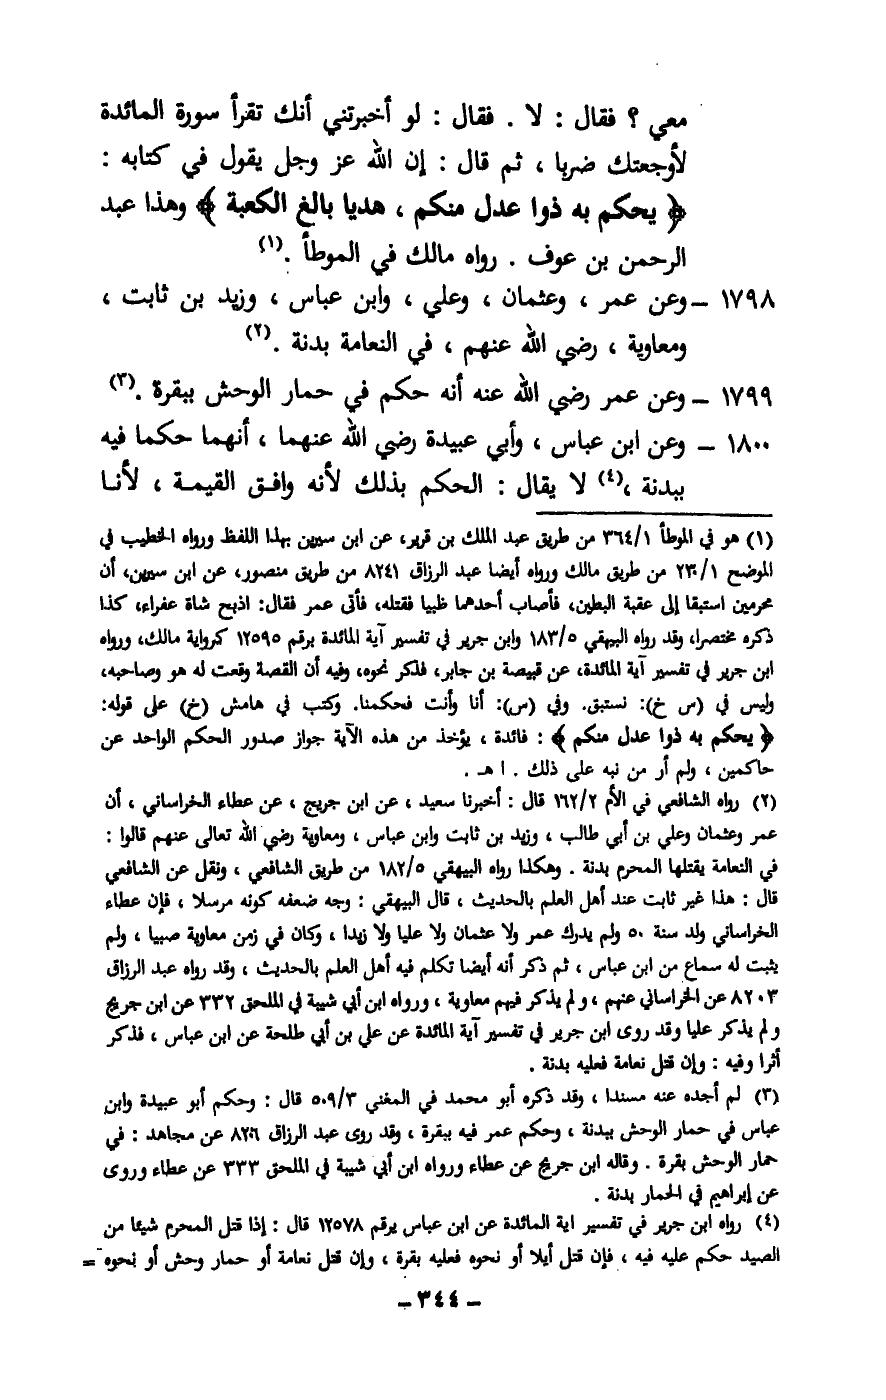 معي ؟ فقال : لا . فقال : لو أخبرتني أنك تقرأ سورة المائدة
لأوجعتك ضربا ، ثم قال : إن الله عز وجل يقول في كتابه :
﴿ يحكم به ذوا عدل منكم ، هديا بالغ الكعبة ﴾ وهذا عبد
الرحمن بن عوف . رواه مالك في الموطأ .(١)
١٧٩٨ – وعن عمر ، وعثمان ، وعلي ، وابن عباس ، وزيد بن ثابت ،
ومعاوية ، رضي الله عنهم ، في النعامة بدنة .(٢)
١٧٩٩ – وعن عمر رضي الله عنه أنه حكم في حمار الوحش ببقرة .(٣)
١٨٠٠ – وعن ابن عباس ، وأبي عبيدة رضي الله عنهما ، أنهما حكما فيه
ببدنة ،(٤) لا يقال : الحكم بذلك لأنه وافق القيمة ، لأنا
(١) هو في الموطأ ٣٦٤/١ من طريق عبد الملك بن قرير، عن ابن سيرين بهذا اللفظ ورواه الخطيب في
الموضح ٢٣٠/١ من طريق مالك ورواه أيضا عبد الرزاق ٨٢٤١ من طريق منصور، عن ابن سيرين، أن
محرمين استبقا إلى عقبة البطين، فأصاب أحدهما ظبيا فقتله، فأتى عمر فقال: اذبح شاة عفراء، كذا
ذكره مختصرا، وقد رواه البيهقي ١٨٣/٥ وابن جرير في تفسير آية المائدة برقم ١٢٥٩٥ كرواية مالك، ورواه
ابن جرير في تفسير آية المائدة، عن قبيصة بن جابر، فذكر نحوه، وفيه أن القصة وقعت له هو وصاحبه،
وليس في (س خ): نستبق. وفي (س): أنا وأنت فحكمنا. وكتب في هامش (خ) على قوله:
﴿ يحكم به ذوا عدل منكم ﴾ : فائدة ، يؤخذ من هذه الآية جواز صدور الحكم الواحد عن
حاكمين ، ولم أر من نبه على ذلك . ا هـ .
(٢) رواه الشافعي في الأم ١٦٢/٢ قال : أخبرنا سعيد ، عن ابن جريج ، عن عطاء الخراساني ، أن
عمر وعثمان وعلي بن أبي طالب ، وزيد بن ثابت وابن عباس ، ومعاوية رضي الله تعالى عنهم قالوا :
في النعامة يقتلها المحرم بدنة . وهكذا رواه البيهقي ١٨٢/٥ من طريق الشافعي ، ونقل عن الشافعي
قال : هذا غير ثابت عند أهل العلم بالحديث ، قال البيهقي : وجه ضعفه كونه مرسلا ، فإن عطاء
الخراساني ولد سنة ٥٠ ولم يدرك عمر ولا عثمان ولا عليا ولا زيدا ، وكان في زمن معاوية صبيا ، ولم
يثبت له سماع من ابن عباس ، ثم ذكر أنه أيضا تكلم فيه أهل العلم بالحديث ، وقد رواه عبد الرزاق
٨٢٠٣ عن الخراساني عنهم ، ولم يذكر فيهم معاوية ، ورواه ابن أبي شيبة في الملحق ٣٣٢ عن ابن جريج
ولم يذكر عليا وقد روى ابن جرير في تفسير آية المائدة عن علي بن أبي طلحة عن ابن عباس ، فذكر
أثرا وفيه : وإن قتل نعامة فعليه بدنة .
(٣) لم أجده عنه مسندا ، وقد ذكره أبو محمد في المغني ٥٠٩/٣ قال : وحكم أبو عبيدة وابن
عباس في حمار الوحش ببدنة ، وحكم عمر فيه ببقرة ، وقد روى عبد الرزاق عن مجاهد : في
حمار الوحش بقرة . وقاله ابن جريج عن عطاء ورواه ابن أبي شيبة في الملحق ٣٣٣ عن عطاء وروى
عن إبراهيم في الحمار بدنة .
(٤) رواه ابن جرير في تفسير اية المائدة عن ابن عباس برقم ١٢٥٧٨ قال : إذا قتل المحرم شيئا من
الصيد حكم عليه فيه ، فإن قتل أيلا أو نحوه فعليه بقرة ، وإن قتل نعامة أو حمار وحش أو نحوه =
– ٣٤٤ –